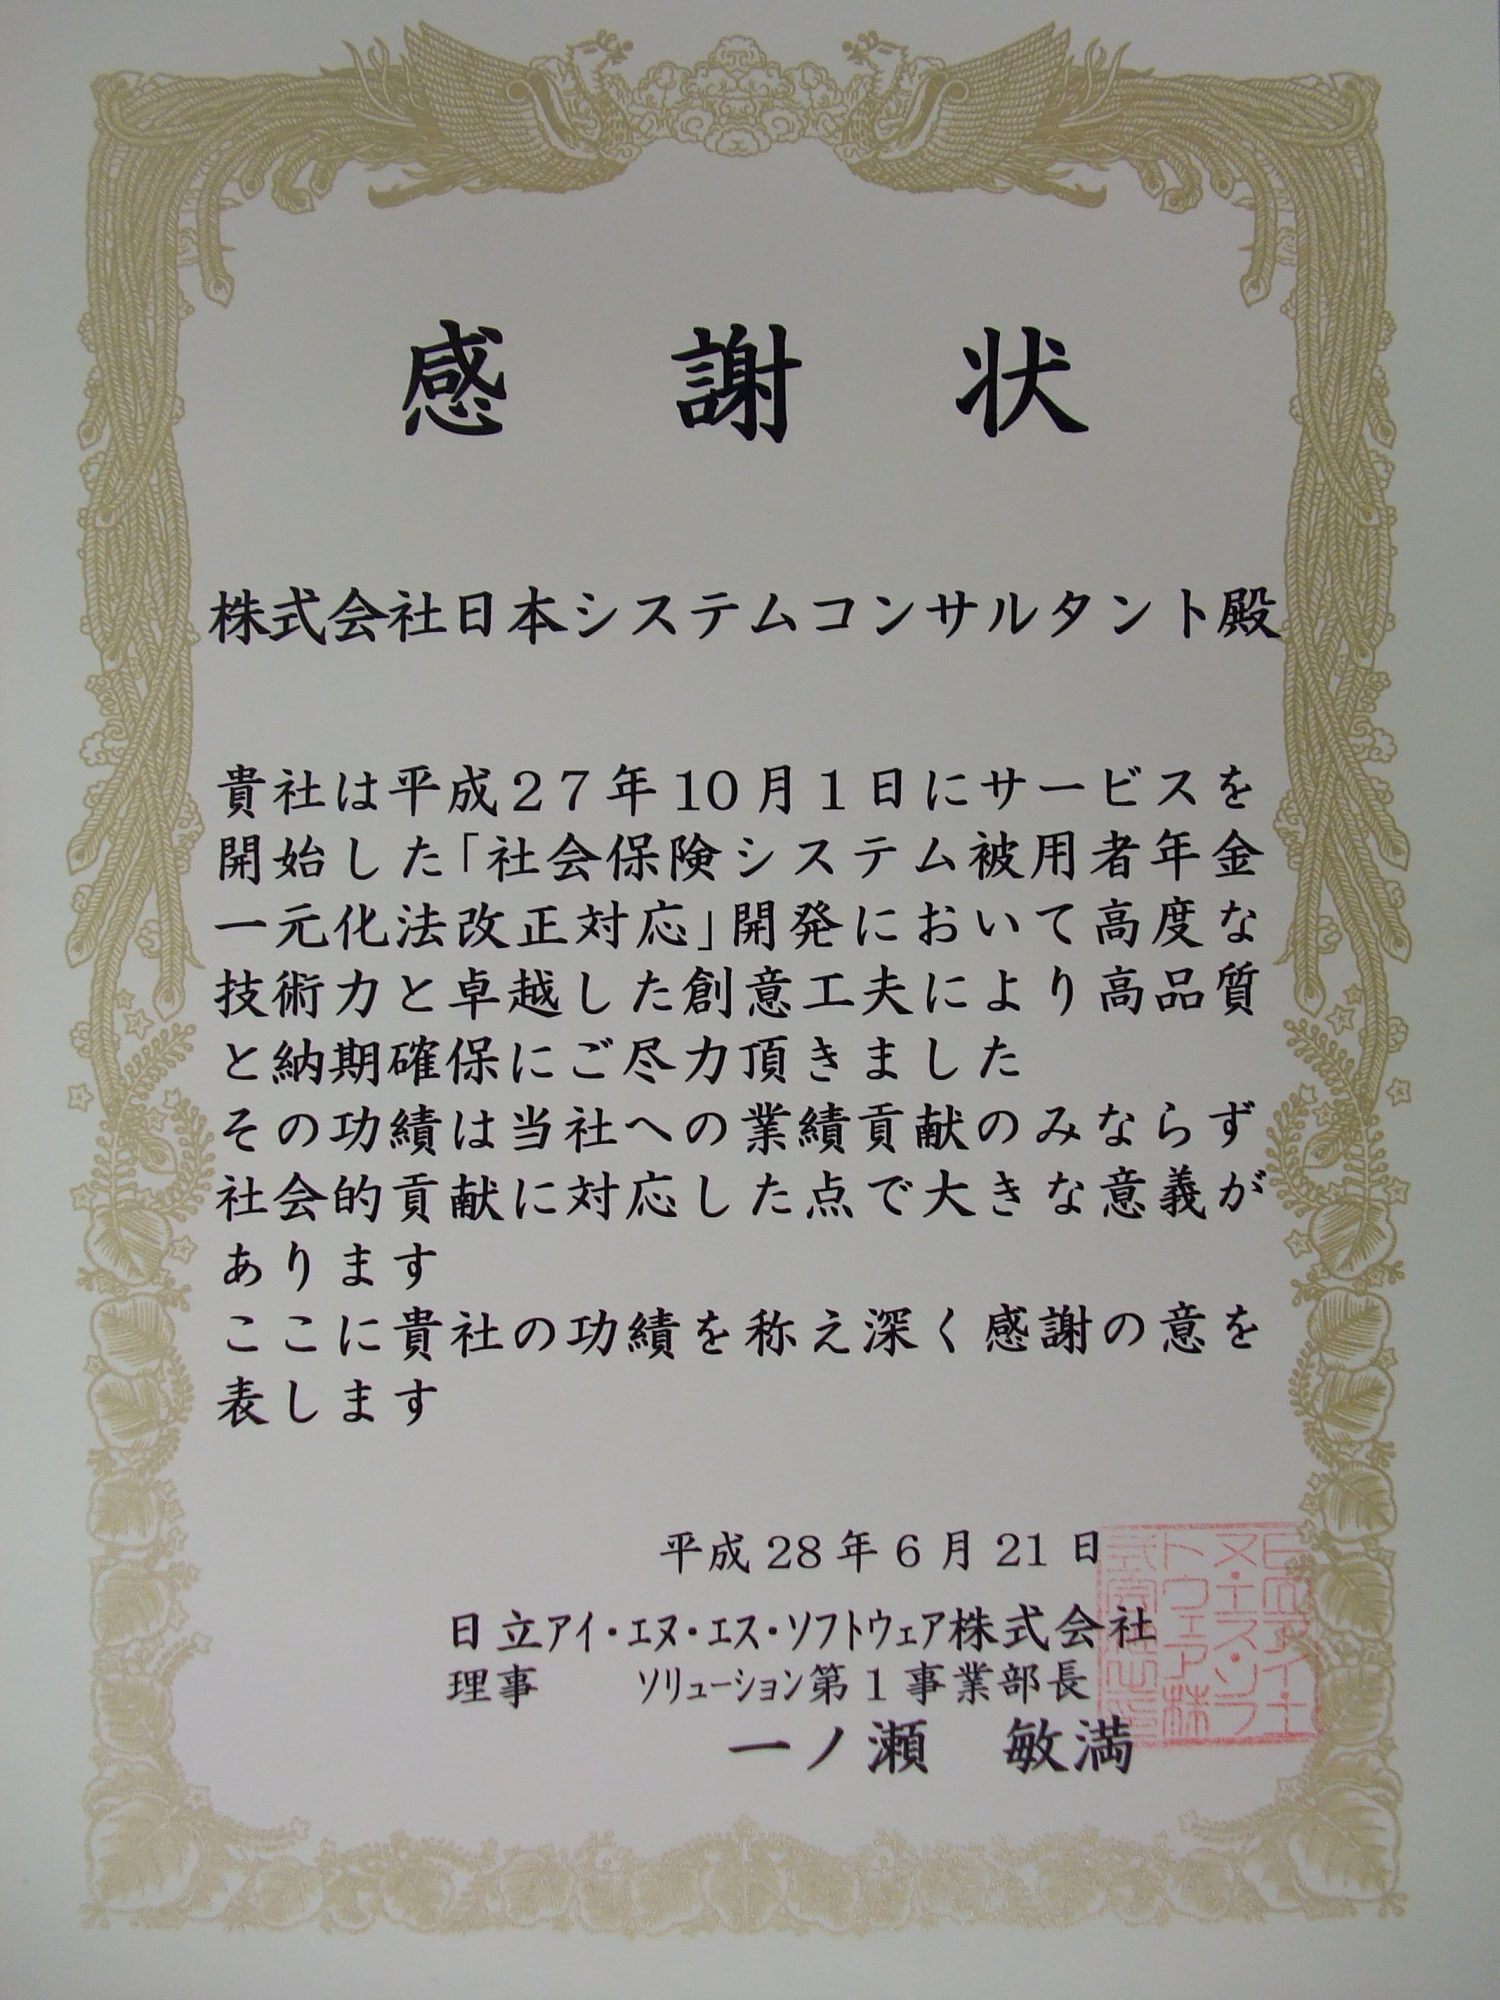 感謝状
株式会社日本システムコンサルタント殿
貴社は平成27年10月1日にサービスを
開始した「社会保険システム被用者年金
一元化法改正対応」開発において高度な
技術力と卓越した創意工夫により高品質
と納期確保にご尽力頂きました
その功績は当社への業績貢献のみならず
社会的貢献に対応した点で大きな意義が
あります
ここに貴社の功績を称え深く感謝の意を
表します
平成28年6月21日
日立アイ・エヌ・エス・ソフトウェア株式会社
理事　ソリューション第1事業部長
一ノ瀬　敏満